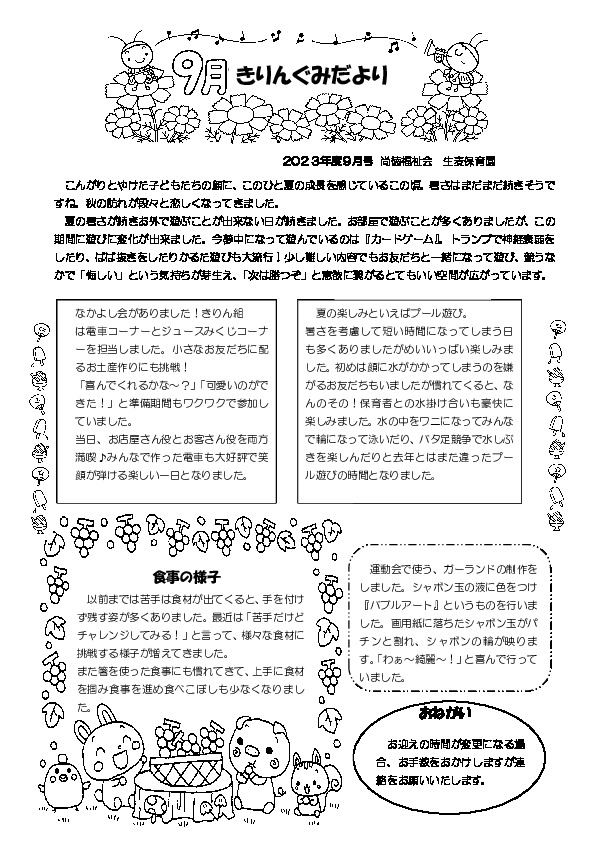 9月 きりんぐみだより
2023年度9月号 尚徳福祉会 生麦保育園
こんがりとやけた子どもたちの顔に、このひと夏の成長を感じているこの頃。暑さはまだまだ続きそうで
すね。秋の訪れが段々と恋しくなってきました。
夏の暑さが続きお外で遊ぶことが出来ない日が続きました。お部屋で遊ぶことが多くありましたが、この
期間に遊びに変化が出来ました。今夢中になって遊んでいるのは『カードゲーム』。トランプで神経衰弱を
したり、ばば抜きをしたりかるた遊びも大流行！少し難しい内容でもお友だちと一緒になって遊び、競うな
かで「悔しい」という気持ちが芽生え、「次は勝つぞ」と意欲に繋がるとてもいい空間が広がっています。
なかよし会がありました！きりん組
は電車コーナーとジュースみくじコーナ
ーを担当しました。小さなお友だちに配
るお土産作りにも挑戦！
「喜んでくれるかな～？」「可愛いのがで
きた！」と準備期間もワクワクで参加し
ていました。
当日、お店屋さん役とお客さん役を両方
満喫♪みんなで作った電車も大好評で笑
顔が弾ける楽しい一日となりました。
夏の楽しみといえばプール遊び。
暑さを考慮して短い時間になってしまう日
も多くありましたがめいいっぱい楽しみま
した。初めは顔に水がかかってしまうのを嫌
がるお友だちもいましたが慣れてくると、な
んのその！保育者との水掛け合いも豪快に
楽しみました。水の中をワニになってみんな
で輪になって泳いだり、バタ足競争で水しぶ
きを楽しんだりと去年とはまた違ったプー
ル遊びの時間となりました。
食事の様子
以前までは苦手は食材が出てくると、手を付け
ず残す姿が多くありました。最近は「苦手だけど
チャレンジしてみる！」と言って、様々な食材に
挑戦する様子が増えてきました。
また箸を使った食事にも慣れてきて、上手に食材
を掴み食事を進め食べこぼしも少なくなりまし
た。
運動会で使う、ガーランドの制作を
しました。シャボン玉の液に色をつけ
『バブルアート』というものを行いま
した。画用紙に落ちたシャボン玉がパ
チンと割れ、シャボンの輪が映りま
す。「わぁ～綺麗～！」と喜んで行って
いました。
おねがい
お迎えの時間が変更になる場
合、お手数をおかけしますが連
絡をお願いいたします。